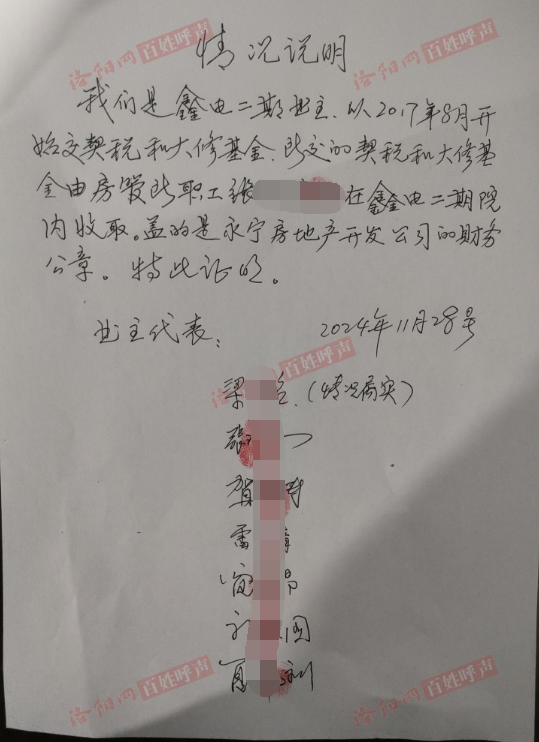 情况说明
我们是鑫电二期业主.从2017年8月开
始交契税和大修基金.所交的契税和大修基
金由房管所职工张 在鑫电二期院
内收取。盖的是永宁房地产开发公司的财务
公章。特此证明。
业主代表： 2024年11月28号
梁 （情况属实）
张
贺
雷
国
洛阳网 百姓呼声
洛阳网 百姓呼声
洛阳网 百姓呼声
洛阳网 百姓呼声
洛阳网 百姓呼声